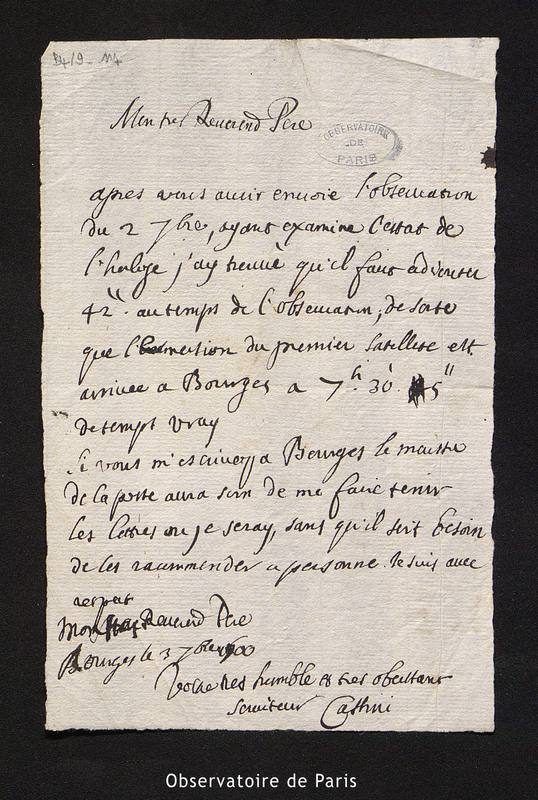 B4/9-114
Mon tres Reverend Pere
OBSERVATOIRE
DE
PARIS
apres vous avoir envoié l'observation
du 2 7bre, ayant examiné l'estat de
l'horloge j'ay trouvé qu'il faut adjouter
42" au temps de l'observation, de sorte
que l'emersion du premier satellite est
arrivée a Bourges a 7h. 30' 5"
de temps vray
Si vous m'escrivez a Bourges le maistre
de la poste aura soin de me faire tenir
les lettres ou je seray, sans qu'il soit besoin
de les recommender a personne. Je suis avec
respect
Mon Reverend Pere
Bourges le 3 7bre 1700
Votre tres humble et tres obeissant
serviteur Cassini
Observatoire de Paris